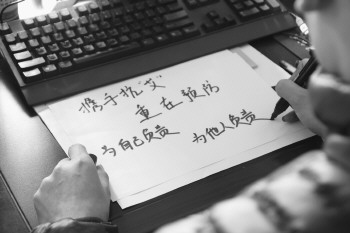 携手抗"艾"
重在预防
为自己负责 为他人负责